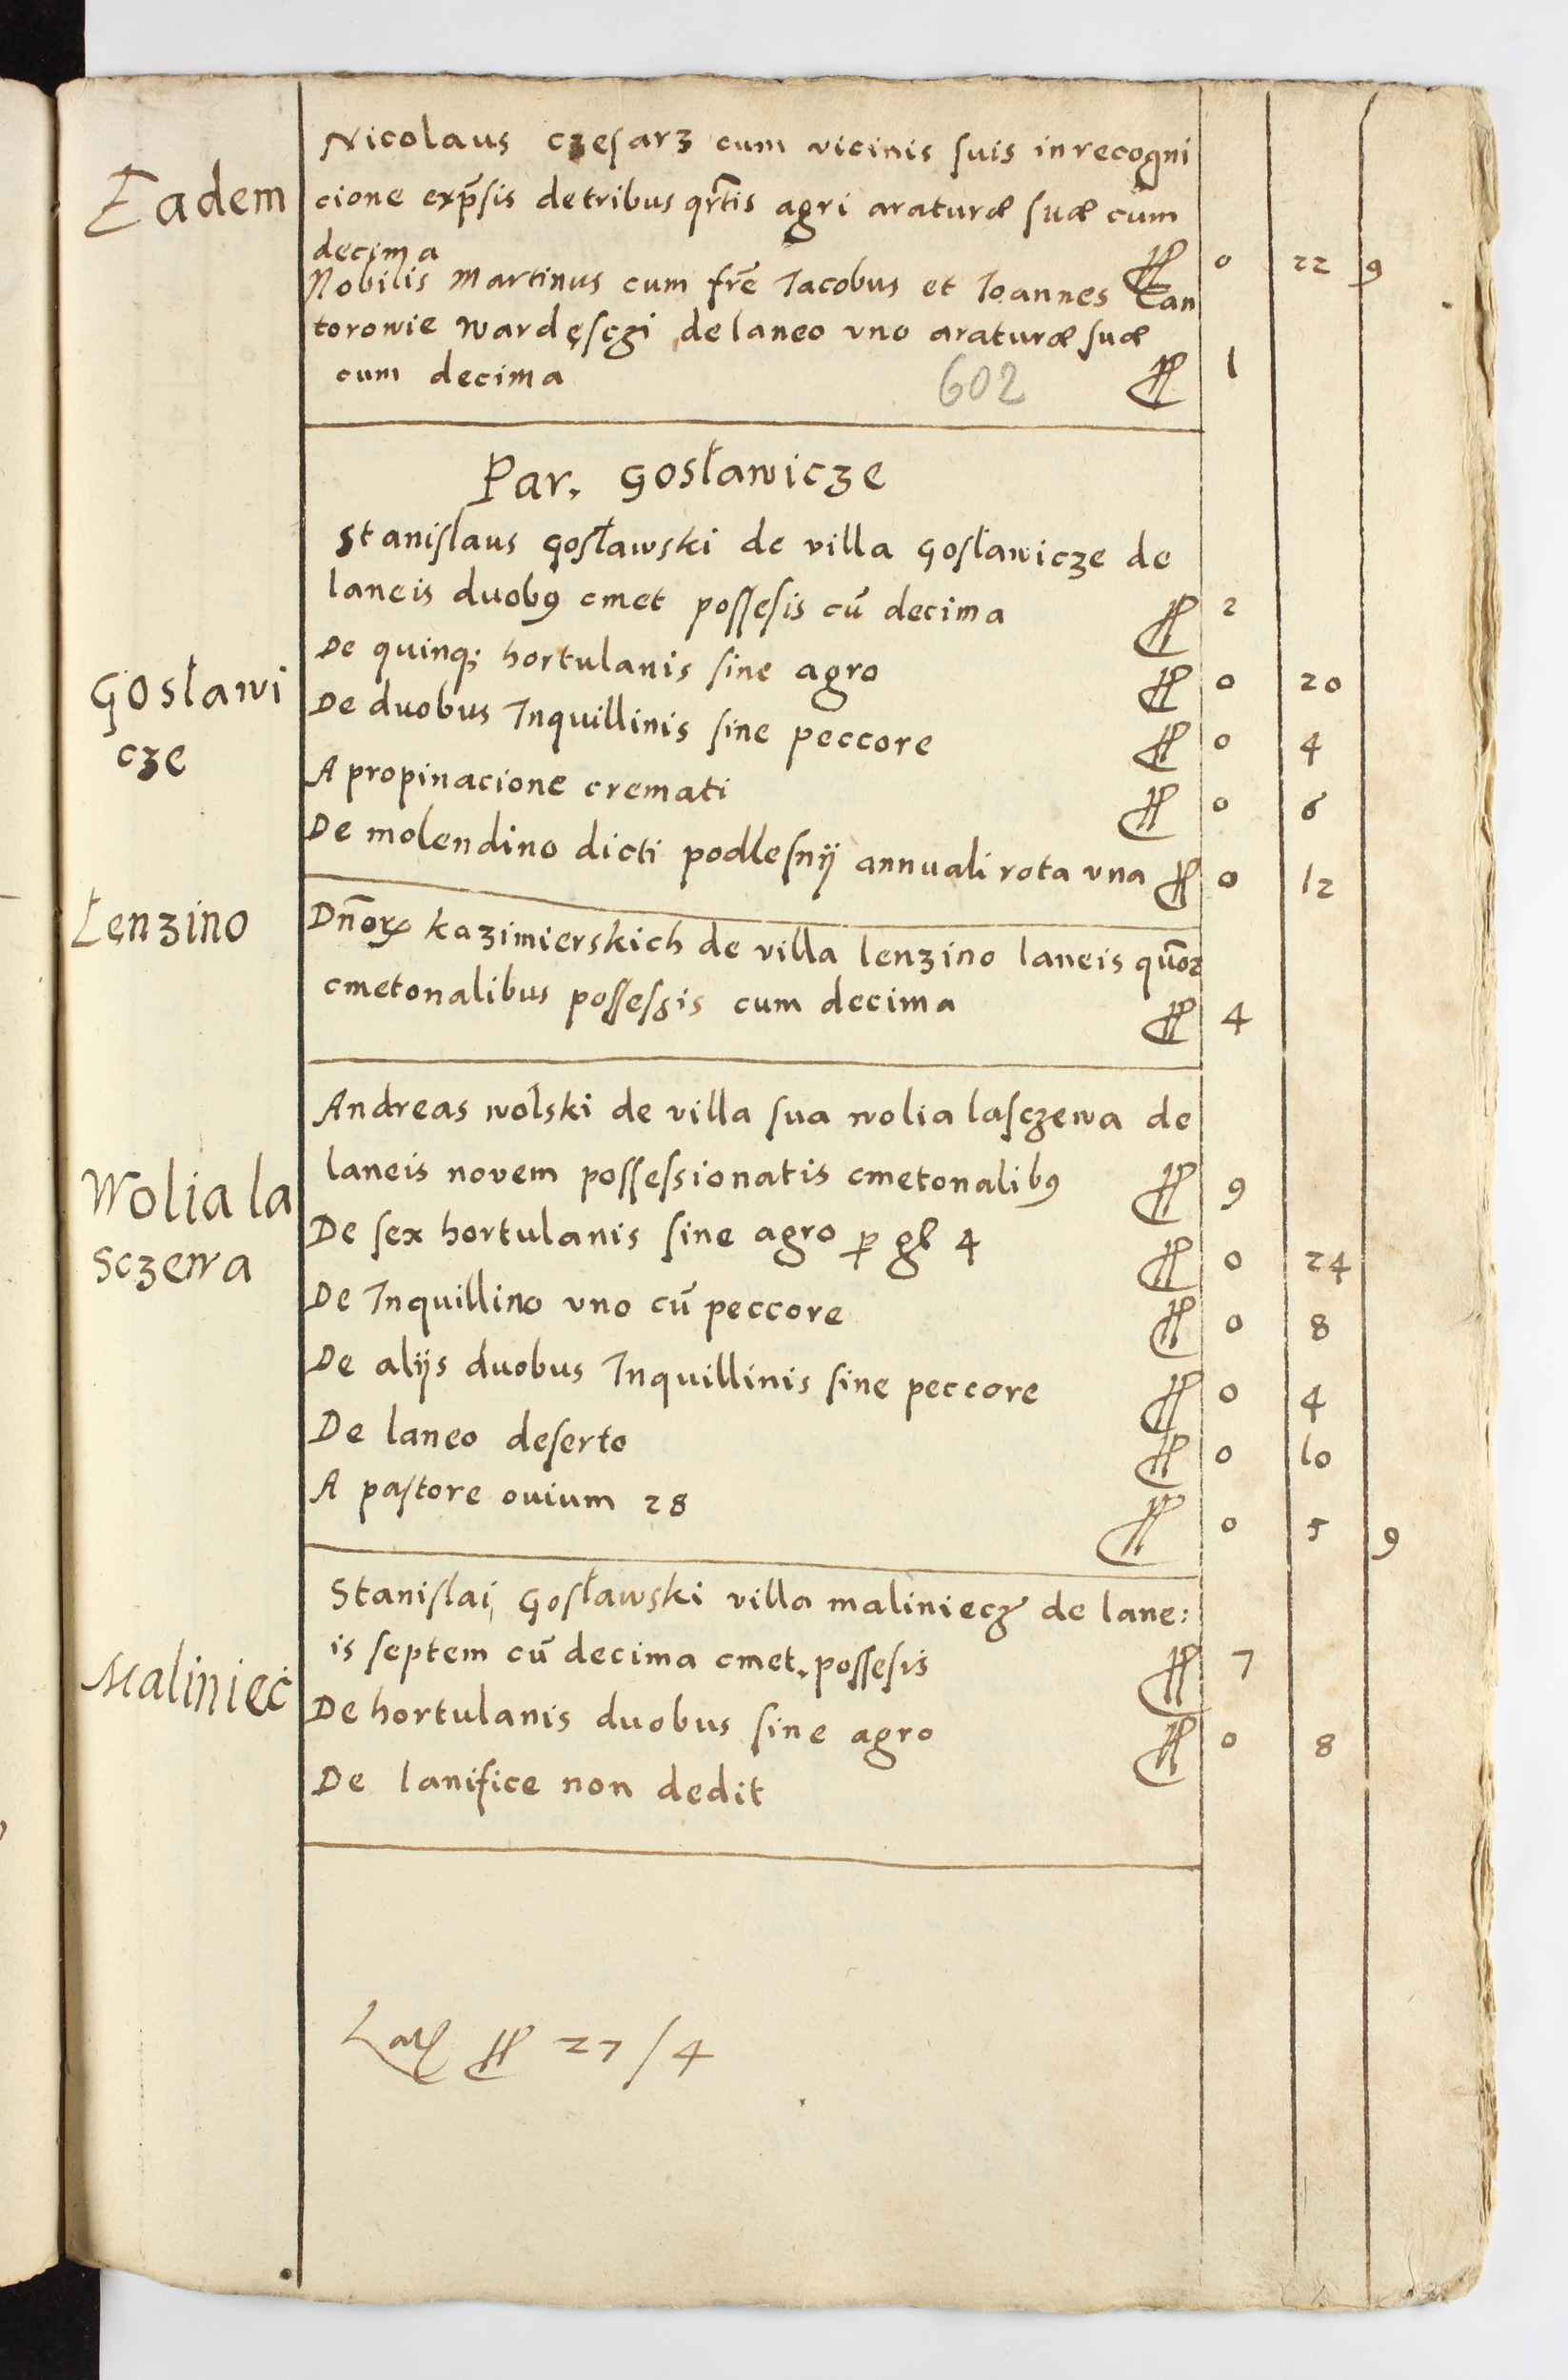 Nicolaus czesarz cum vicinis suis in recogni
Eadem cione exp̃sis de tribus qr̃tis agri araturæ suæ cum
decima ƒƒ 0 22 9
Nobilis Martinus cum fr̃e Jacobus et Joannes Can
torowie wardęsczi de laneo vno araturæ suæ
cum decima ƒƒ 1
602
Par. Gosławicze
Stanislaus gosławski de villa Gosławicze de
laneis duob9 cmet possesis cū decima ƒƒ 2
De quinq; hortulanis sine agro ƒƒ 0 20
Gosławi
cze
De duobus Inquillinis sine peccore ƒƒ 0 4
A propinacione cremati ƒƒ 0 6
De molendino dicti podlesnÿ annuali rota vna ƒƒ 0 12
Lenzino
Dn̄oꝝ kazimierskich de villa lenzino laneis qūor
cmetonalibus possessis cum decima ƒƒ 4
Andreas wolski de villa sua wolia lasczewa de
laneis novem possessionatis cmetonalib9 ƒƒ 9
Wolia la
sczewa
De sex hortulanis sine agro ꝑ gł 4 ƒƒ 0 24
De Inquillino vno cū peccore ƒƒ 0 8
De alijs duobus Inquillinis sine peccore ƒƒ 0 4
De laneo deserto ƒƒ 0 10
A pastore ovium 28 ƒƒ 0 5 9
Stanislai Gosławski villa maliniecz de lane:
is septem cū decima cmet. possesis ƒƒ 7
Maliniec
De hortulanis duobus sine agro ƒƒ 0 8
De lanifice non dedit
ƒƒ 27/4